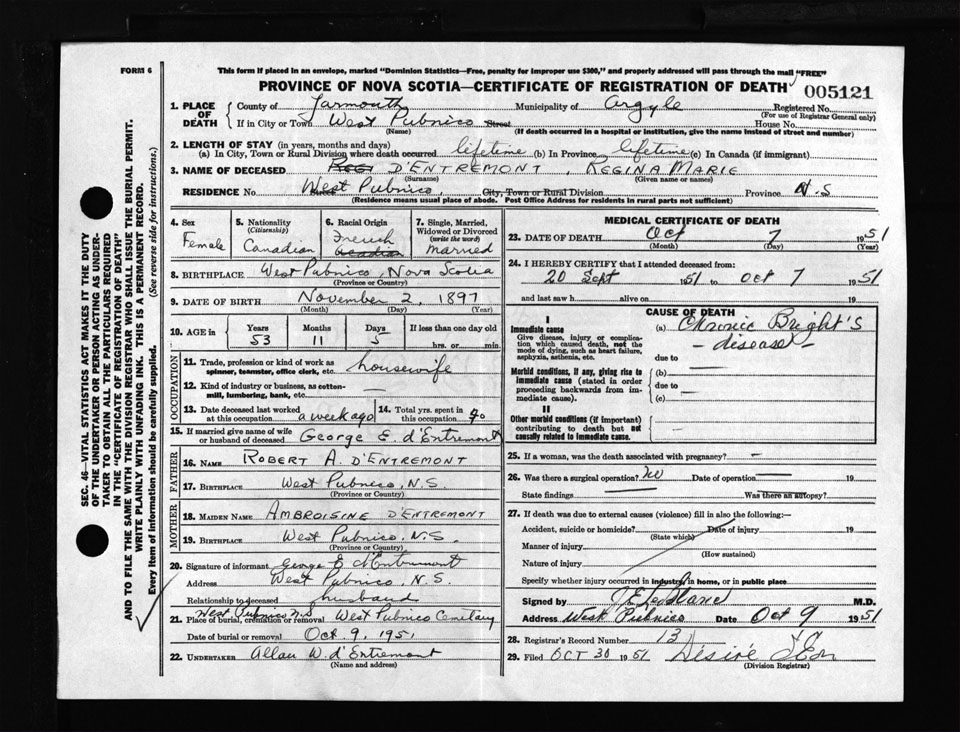 FORM 6
This form if placed in an envelope, marked "Dominion Statistics—Free, penalty for improper use $300," and properly addressed will pass through the mail "FREE"
PROVINCE OF NOVA SCOTIA—CERTIFICATE OF REGISTRATION OF DEATH
005121
1. PLACE OF DEATH
County of Yarmouth Municipality of Argyle Registered No.
(For use of Registrar General only)
If in City or Town West Pubnico Street House No.
(Name) (If death occurred in a hospital or institution, give the name instead of street and number)
2. LENGTH OF STAY (in years, months and days)
(a) In City, Town or Rural Division where death occurred lifetime (b) In Province lifetime (c) In Canada (if immigrant)
3. NAME OF DECEASED D'ENTREMONT, REGINA MARIE
(Surname) (Given name or names)
RESIDENCE No. West Pubnico, City, Town or Rural Division Province N.S
(Residence means usual place of abode. Post Office Address for residents in rural parts not sufficient)
4. Sex Female
5. Nationality (Citizenship) Canadian
6. Racial Origin French Acadian
7. Single, Married, Widowed or Divorced (write the word) married
8. BIRTHPLACE West Pubnico, Nova Scotia
(Province or Country)
9. DATE OF BIRTH November 2, 1897
(Month) (Day) (Year)
10. AGE in Years 53 Months 11 Days 5 If less than one day old hrs. or min.
OCCUPATION
11. Trade, profession or kind of work as spinner, teamster, office clerk, etc. housewife
12. Kind of industry or business, as cotton-mill, lumbering, bank, etc.
13. Date deceased last worked at this occupation a week ago
14. Total yrs. spent in this occupation 40
15. If married give name of wife or husband of deceased George E. d'Entremont
FATHER
16. NAME ROBERT A. D'ENTREMONT
17. BIRTHPLACE West Pubnico, N.S.
(Province or Country)
MOTHER
18. MAIDEN NAME AMBROISINE D'ENTREMONT
19. BIRTHPLACE West Pubnico, N.S.
(Province or Country)
20. Signature of informant George E d'Entremont
Address West Pubnico, N.S.
Relationship to deceased husband
West Pubnico N.S
21. Place of burial, cremation or removal West Pubnico Cemetary
Date of burial or removal Oct. 9, 1951
22. UNDERTAKER Allan W. d'Entremont
(Name and address)
MEDICAL CERTIFICATE OF DEATH
23. DATE OF DEATH Oct 7 1951
(Month) (Day) (Year)
24. I HEREBY CERTIFY that I attended deceased from:
20 Sept 1951 to Oct 7 1951
and last saw h alive on 19
CAUSE OF DEATH
I
Immediate cause
Give disease, injury or complication which caused death, not the mode of dying, such as heart failure, asphyxia, asthenia, etc.
(a) Chronic Bright's
- disease -
due to
Morbid conditions, if any, giving rise to immediate cause (stated in order proceeding backwards from immediate cause).
(b)
due to
(c)
II
Other morbid conditions (if important) contributing to death but not causally related to immediate cause.
25. If a woman, was the death associated with pregnancy? —
26. Was there a surgical operation? no Date of operation
State findings Was there an autopsy?
27. If death was due to external causes (violence) fill in also the following:—
Accident, suicide or homicide? Date of injury 19
(State which)
Manner of injury
(How sustained)
Nature of injury
Specify whether injury occurred in industry, in home, or in public place
Signed by J.E. LeBlanc M.D.
Address West Pubnico Date Oct 9 1951
28. Registrar's Record Number 13
29. Filed OCT 30 1951 Désiré
(Division Registrar)
SEC. 46—VITAL STATISTICS ACT MAKES IT THE DUTY
OF THE UNDERTAKER OR PERSON ACTING AS UNDER-
TAKER TO OBTAIN ALL THE PARTICULARS REQUIRED
IN THE "CERTIFICATE OF REGISTRATION OF DEATH"
AND TO FILE THE SAME WITH THE DIVISION REGISTRAR WHO SHALL ISSUE THE BURIAL PERMIT.
WRITE PLAINLY WITH UNFADING INK. THIS IS A PERMANENT RECORD.
Every item of information should be carefully supplied. (See reverse side for instructions.)